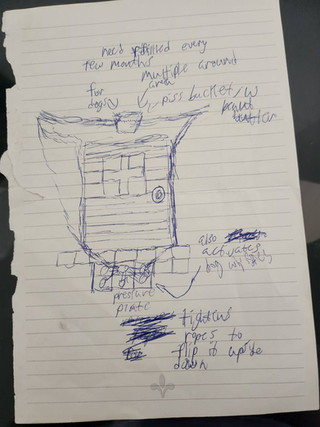 need refilled every
few months
multiple around
area
for
dogs
piss bucket/w
button
also
activates
pressure
plate
tightens
ropes to
flip it upside
down